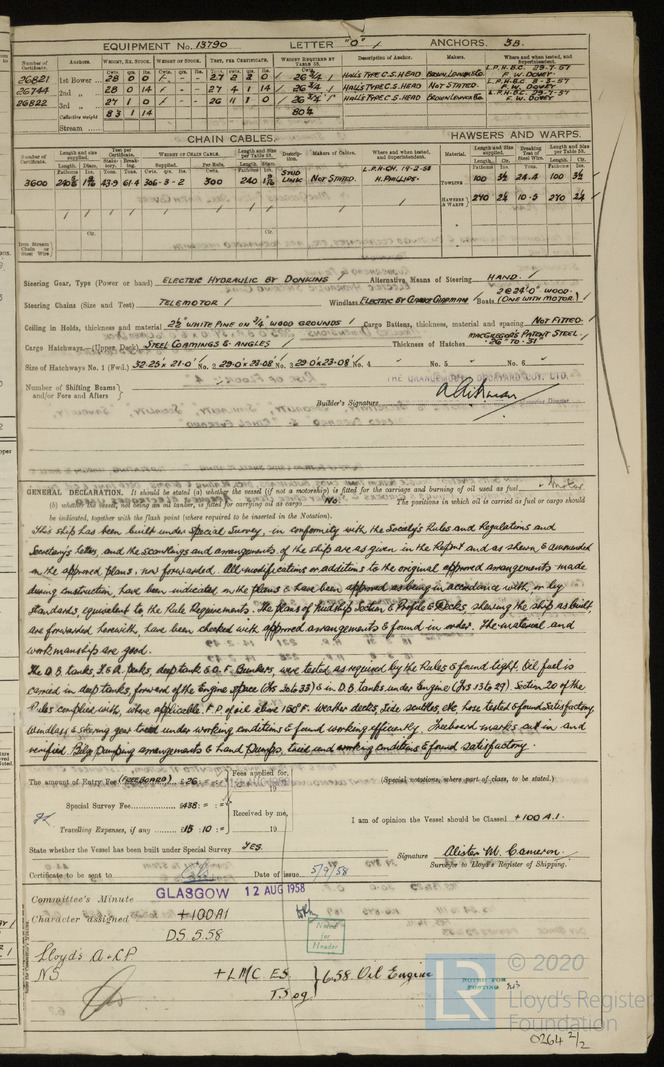 EQUIPMENT No. 13790 LETTER "O" / ANCHORS. 3B.
Number of Certificate. Anchors. WEIGHT, EX. STOCK. WEIGHT OF STOCK. TEST, PER CERTIFICATE. WEIGHT REQUIRED BY TABLE 53. Description of Anchor. Makers. Where and when tested, and Superintendent.
Cwts. qrs. lbs. Cwts. qrs. lbs.
26821 1st Bower 28 0 0 27 2 2 0 26¾ / HALL'S TYPE C.S. HEAD BROWN, LENOX & CO. L.P.H.B.C. 29-7-57 F. W. DOVEY
26744 2nd „ 28 0 14 27 4 1 14 26¾ / HALL'S TYPE C.S. HEAD NOT STATED. L.P.H.B.C. F. W. DOVEY
26822 3rd „ 27 1 0 26 11 1 0 26¾ / HALL'S TYPE C.S. HEAD BROWN LENOX & CO. L.P.H.B.C. 29-7-57 F. W. DOVEY
Collective weight 83 1 14 80¼
Stream
CHAIN CABLES. HAWSERS AND WARPS.
Number of Certificate. Length and size supplied. Test per Certificate. WEIGHT OF CHAIN CABLE. Length and Size per Table 53. Description. Makers of Cables. Where and when tested, and Superintendent. Material. Length and Size supplied. Breaking Test of Steel Wire. Length and Size per Table 53.
Fathoms Diam. Tons. Tons. Supplied. Per Rule. Fathoms Diam. Length. Cir. Tons. Length. Cir.
3600 43.9 61.4 306-3-2 300 240 STUD LINK NOT STATED. L.P.H-CH. 19-2-58 H. PHILLIPS. TOWLING 100 3½ 24.4 100 3½
HAWSERS & WARPS 270 2¼ 10.5 270 2¼
Iron Stream Chain or Steel Wire
Steering Gear, Type (Power or hand) ELECTRIC HYDRAULIC BY DONKINS / Alternative Means of Steering HAND. /
Steering Chains (Size and Test) TELEMOTOR / Windlass ELECTRIC BY CLARKE CHAPMAN / Boats 2 @ 24'0" WOOD. (ONE WITH MOTOR) /
Ceiling in Holds, thickness and material 2½" WHITE PINE ON ¾" WOOD GROUNDS / Cargo Battens, thickness, material and spacing NOT FITTED. /
Cargo Hatchways.—(Upper Deck) STEEL COAMINGS & ANGLES / Thickness of Hatches MACGREGOR'S PATENT STEEL /
Size of Hatchways No. 1 (Fwd.) 32.25 x 21.0' / No. 2 29.0 x 23.08' / No. 3 29.0 x 23.08 / No. 4 No. 5 No. 6
Number of Shifting Beams and/or Fore and Afters
THE GRANGEMOUTH DOCKYARD COY. LTD.
Builder's Signature
GENERAL DECLARATION. It should be stated (a) whether the vessel (if not a motorship) is fitted for the carriage and burning of oil used as fuel Motor
(b) whether the vessel, not being an oil tanker, is fitted for carrying oil as cargo No The positions in which oil is carried as fuel or cargo should
be indicated, together with the flash point (where required to be inserted in the Notation).
This ship has been built under Special Survey, in conformity with the Society's Rules and Regulations and
Secretary's letters, and the scantlings and arrangements of the ship are as given in the Report and as shewn & ammended
in the approved plans, now forwarded. All modifications or additions to the original approved arrangements made
during construction, have been indicated on the plans & have been approved as being in accordance with, or by
standards equivalent to the Rule Requirements. The plans of Midship Section & Profile & Decks, shewing the ship as built
are forwarded herewith, have been checked with approved arrangements & found in order. The material and
workmanship are good.
The D.B tanks, F. & A. Peaks, deep tank & O.F. Bunkers, were tested as required by the Rules & found tight. Oil fuel is
carried in deep tanks forward of the Engine space (Frs 30 to 33) & in D.B tanks under Engine (Frs 13 to 29) Section 20 of the
Rules complied with, where applicable. F.P. of oil above 150°F. Weather decks, side scuttles etc hose tested & found satisfactory
Windlass & steering gear tried under working conditions & found working efficiently. Freeboard marks cut in and
verified. Bilge Pumping arrangements & hand Pumps, tried under working conditions & found satisfactory.
The amount of Entry Fee (FREEBOARD) £26 : - : - Fees applied for, 19 (Special notations, where part of class, to be stated.)
Special Survey Fee £438 : - : - Received by me, I am of opinion the Vessel should be Classed +100 A.1.
Travelling Expenses, if any £15 : 10 : - 19
State whether the Vessel has been built under Special Survey YES. Signature Alister M. Cameron.
Surveyor to Lloyd's Register of Shipping.
Certificate to be sent to Date of issue 5/9/58
Committee's Minute GLASGOW 12 AUG 1958
Character assigned +100A1
DS 5.58
Noted for Header
Lloyd's A & CP
NS +LMC ES. 6.58 Oil Engine
T.S og
NOTED FOR POSTING
© 2020
LR
Lloyd's Register
Foundation
0264 2/2